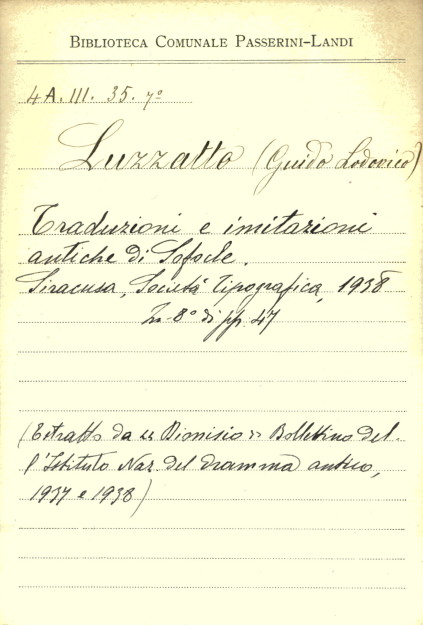 BIBLIOTECA COMUNALE PASSERINI-LANDI
4 A. III. 35. 7º
Luzzatto (Guido Lodovico)
Traduzioni e imitazioni
antiche di Sofocle.
Siracusa, Società Tipografica, 1938
In-8º di pp. 47
(Estratto da « Dionisio » Bollettino del-
l'Istituto Naz. del dramma antico,
1937 e 1938)